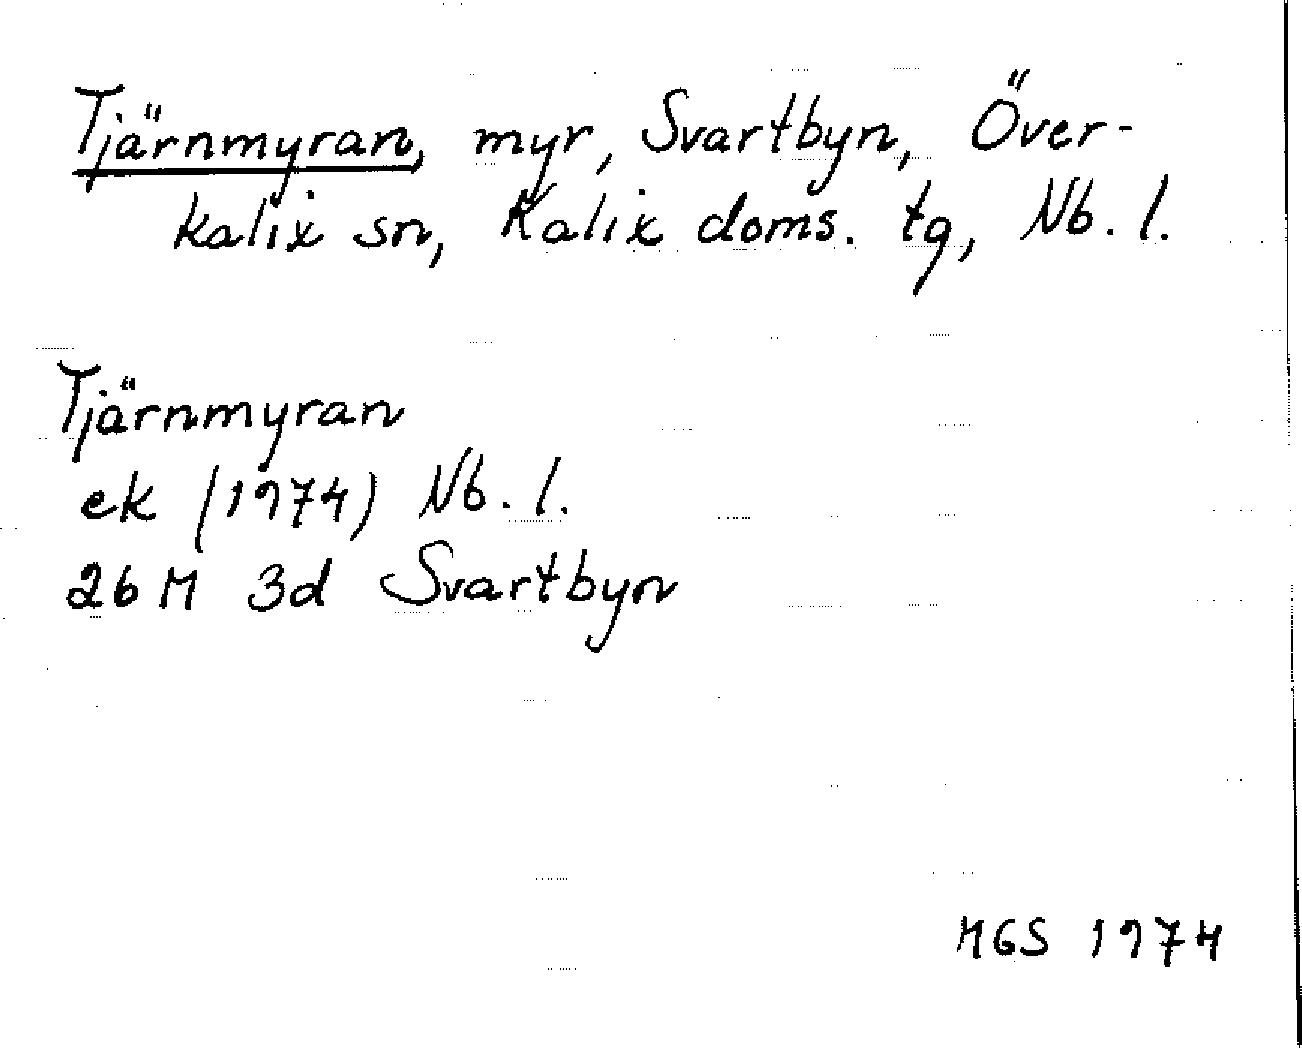 Tjärnmyran, myr, Svartbyn, Över-
kalix sn, Kalix doms. tg, Nb. l.
Tjärnmyran
ek (1974) Nb. l.
26 M 3d Svartbyn
MGS 1974